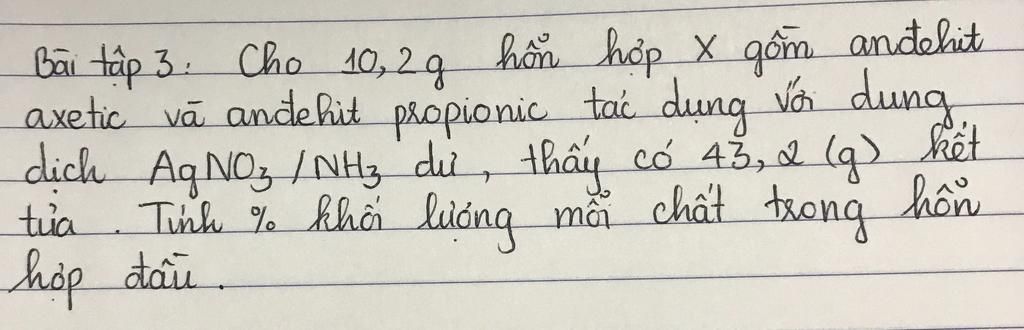 Bài tập 3: Cho 10,2g hỗn hợp X gồm anđehit
axetic và anđehit propionic tác dụng với dung
dịch AgNO3/NH3 dư, thấy có 43,2 (g) kết
tủa. Tính % khối lượng mỗi chất trong hỗn
hợp đầu.